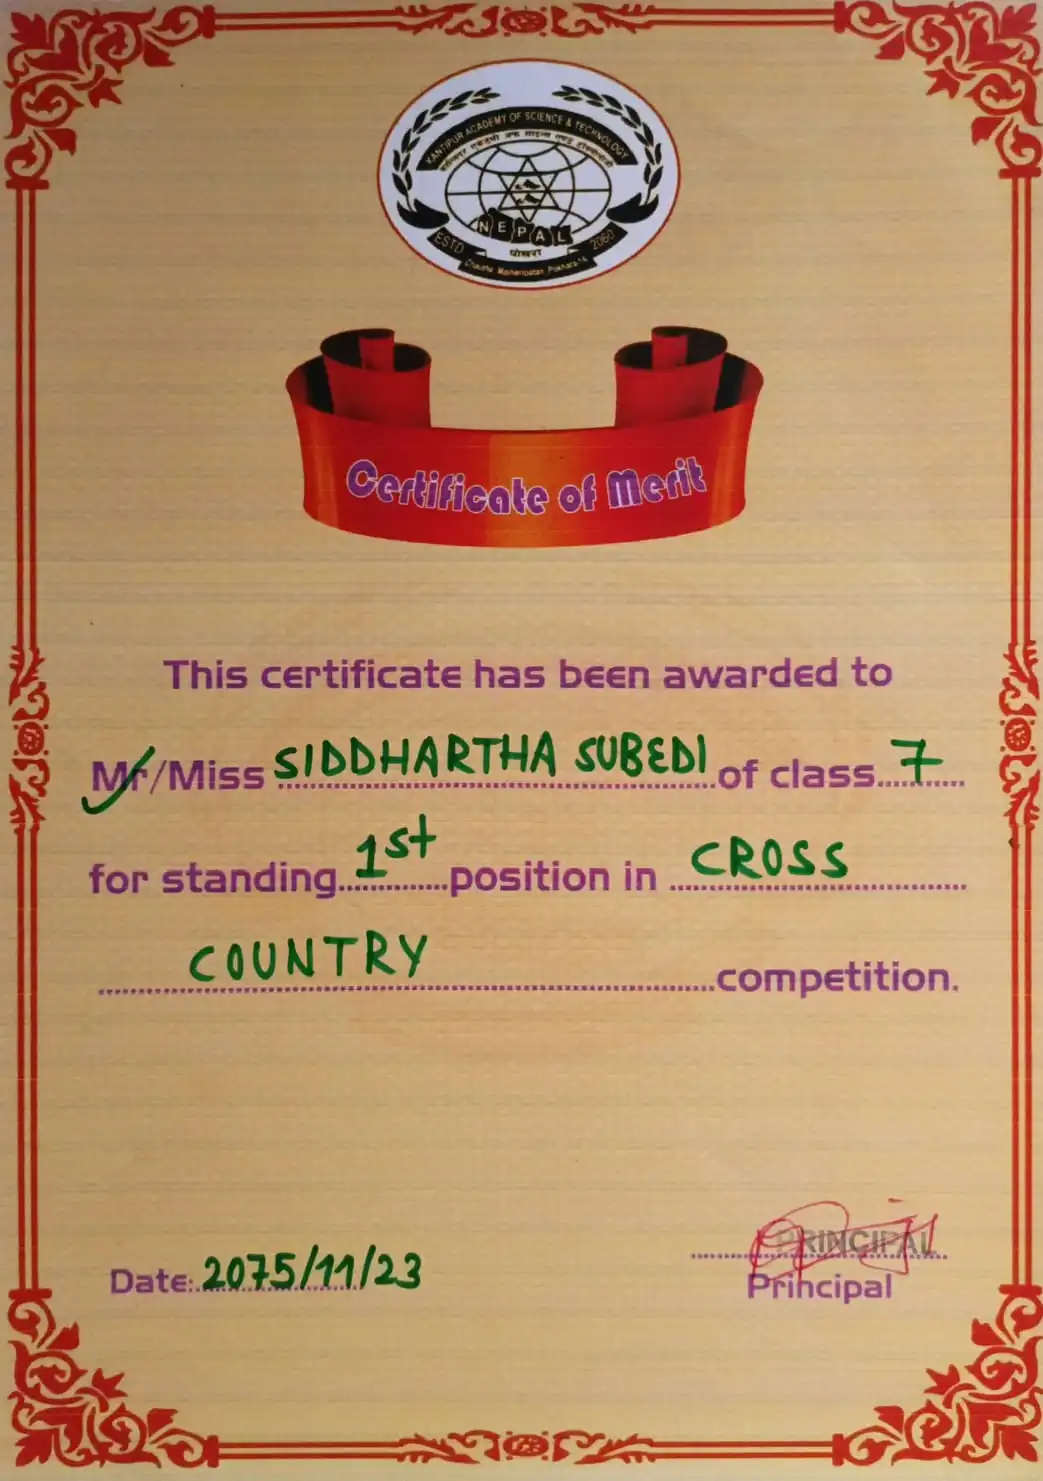 KANTIPUR ACADEMY OF SCIENCE & TECHNOLOGY
NEPAL
पोखरा
ESTD 2060
Certificate of Merit
This certificate has been awarded to
Mr/Miss SIDDHARTHA SUBEDI of class 7
for standing 1st position in CROSS
COUNTRY competition.
PRINCIPAL
Date: 2075/11/23
Principal